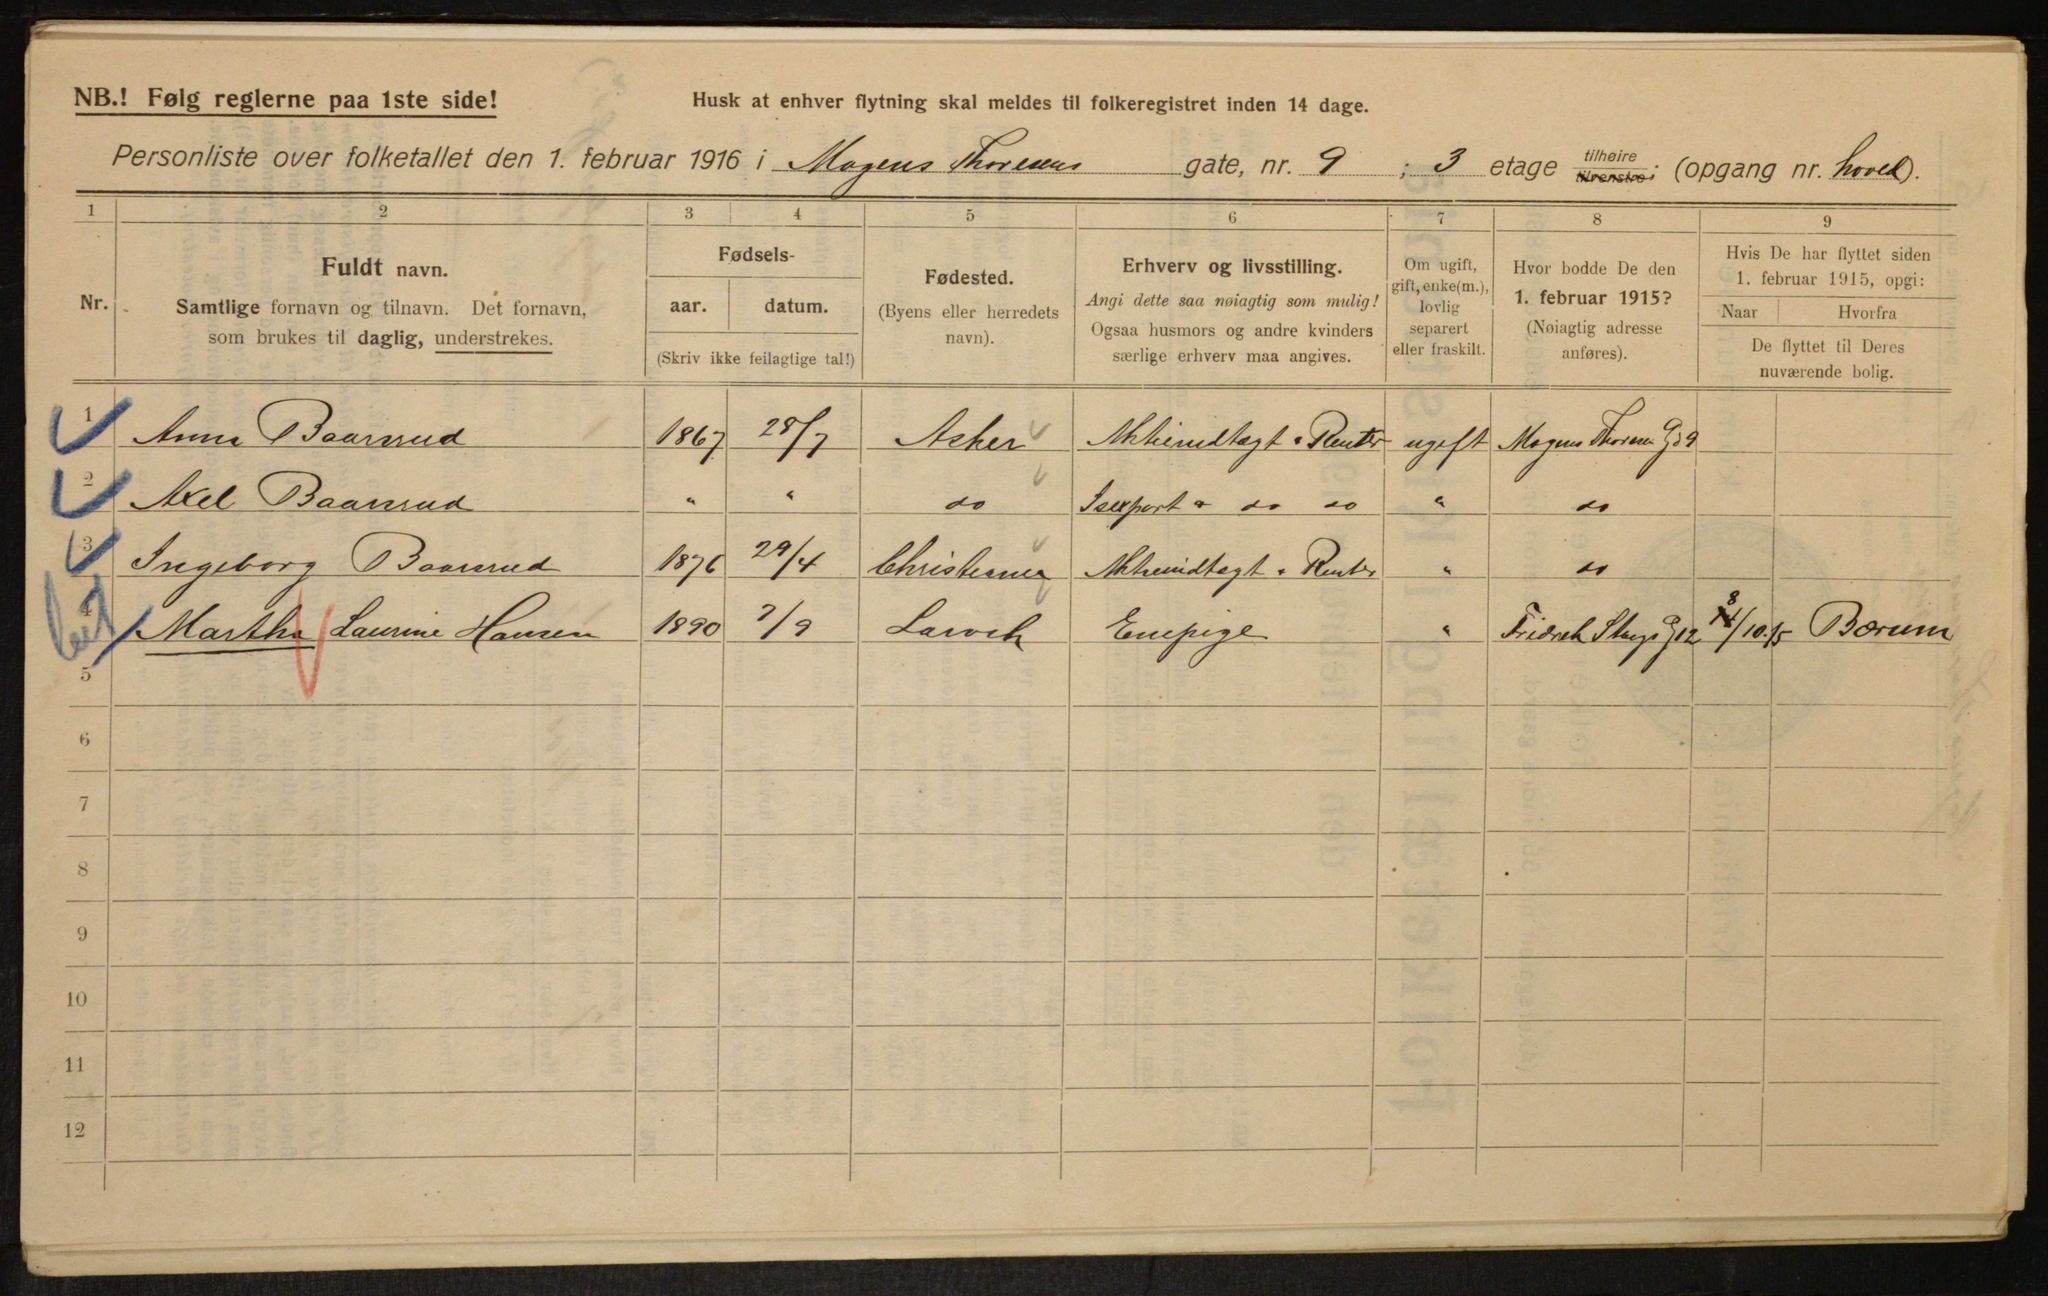 NB.! Følg reglerne paa 1ste side!
Husk at enhver flytning skal meldes til folkeregistret inden 14 dage.
Personliste over folketallet den 1. februar 1916 i Mogens Thoresens gate, nr. 9 ; 3 etage tilhøire tilvenstre; (opgang nr. hoved).
1 2 3 4 5 6 7 8 9
Nr.
Fuldt navn.
Samtlige fornavn og tilnavn. Det fornavn,
som brukes til daglig, understrekes.
Fødsels-
aar. datum.
(Skriv ikke feilagtige tal!)
Fødested.
(Byens eller herredets
navn).
Erhverv og livsstilling.
Angi dette saa nøiagtig som mulig!
Ogsaa husmors og andre kvinders
særlige erhverv maa angives.
Om ugift,
gift, enke(m.),
lovlig
separert
eller fraskilt.
Hvor bodde De den
1. februar 1915?
(Nøiagtig adresse
anføres).
Hvis De har flyttet siden
1. februar 1915, opgi:
Naar Hvorfra
De flyttet til Deres
nuværende bolig.
1 Anna Baarsrud 1867 28/7 Asker Aktieudtagt " Renter ugift Mogens Thorsens Gd 9
2 Axel Baarsrud " " do Isexport " do do " do
3 Ingeborg Baarsrud 1876 29/4 Christiania Aktieudtagt " Renter " do
4 Martha Laurine Hansen 1890 7/9 Larvik Enepige " Fridrek Stangs G 12 8/10.15 Bærum
5
6
7
8
9
10
11
12